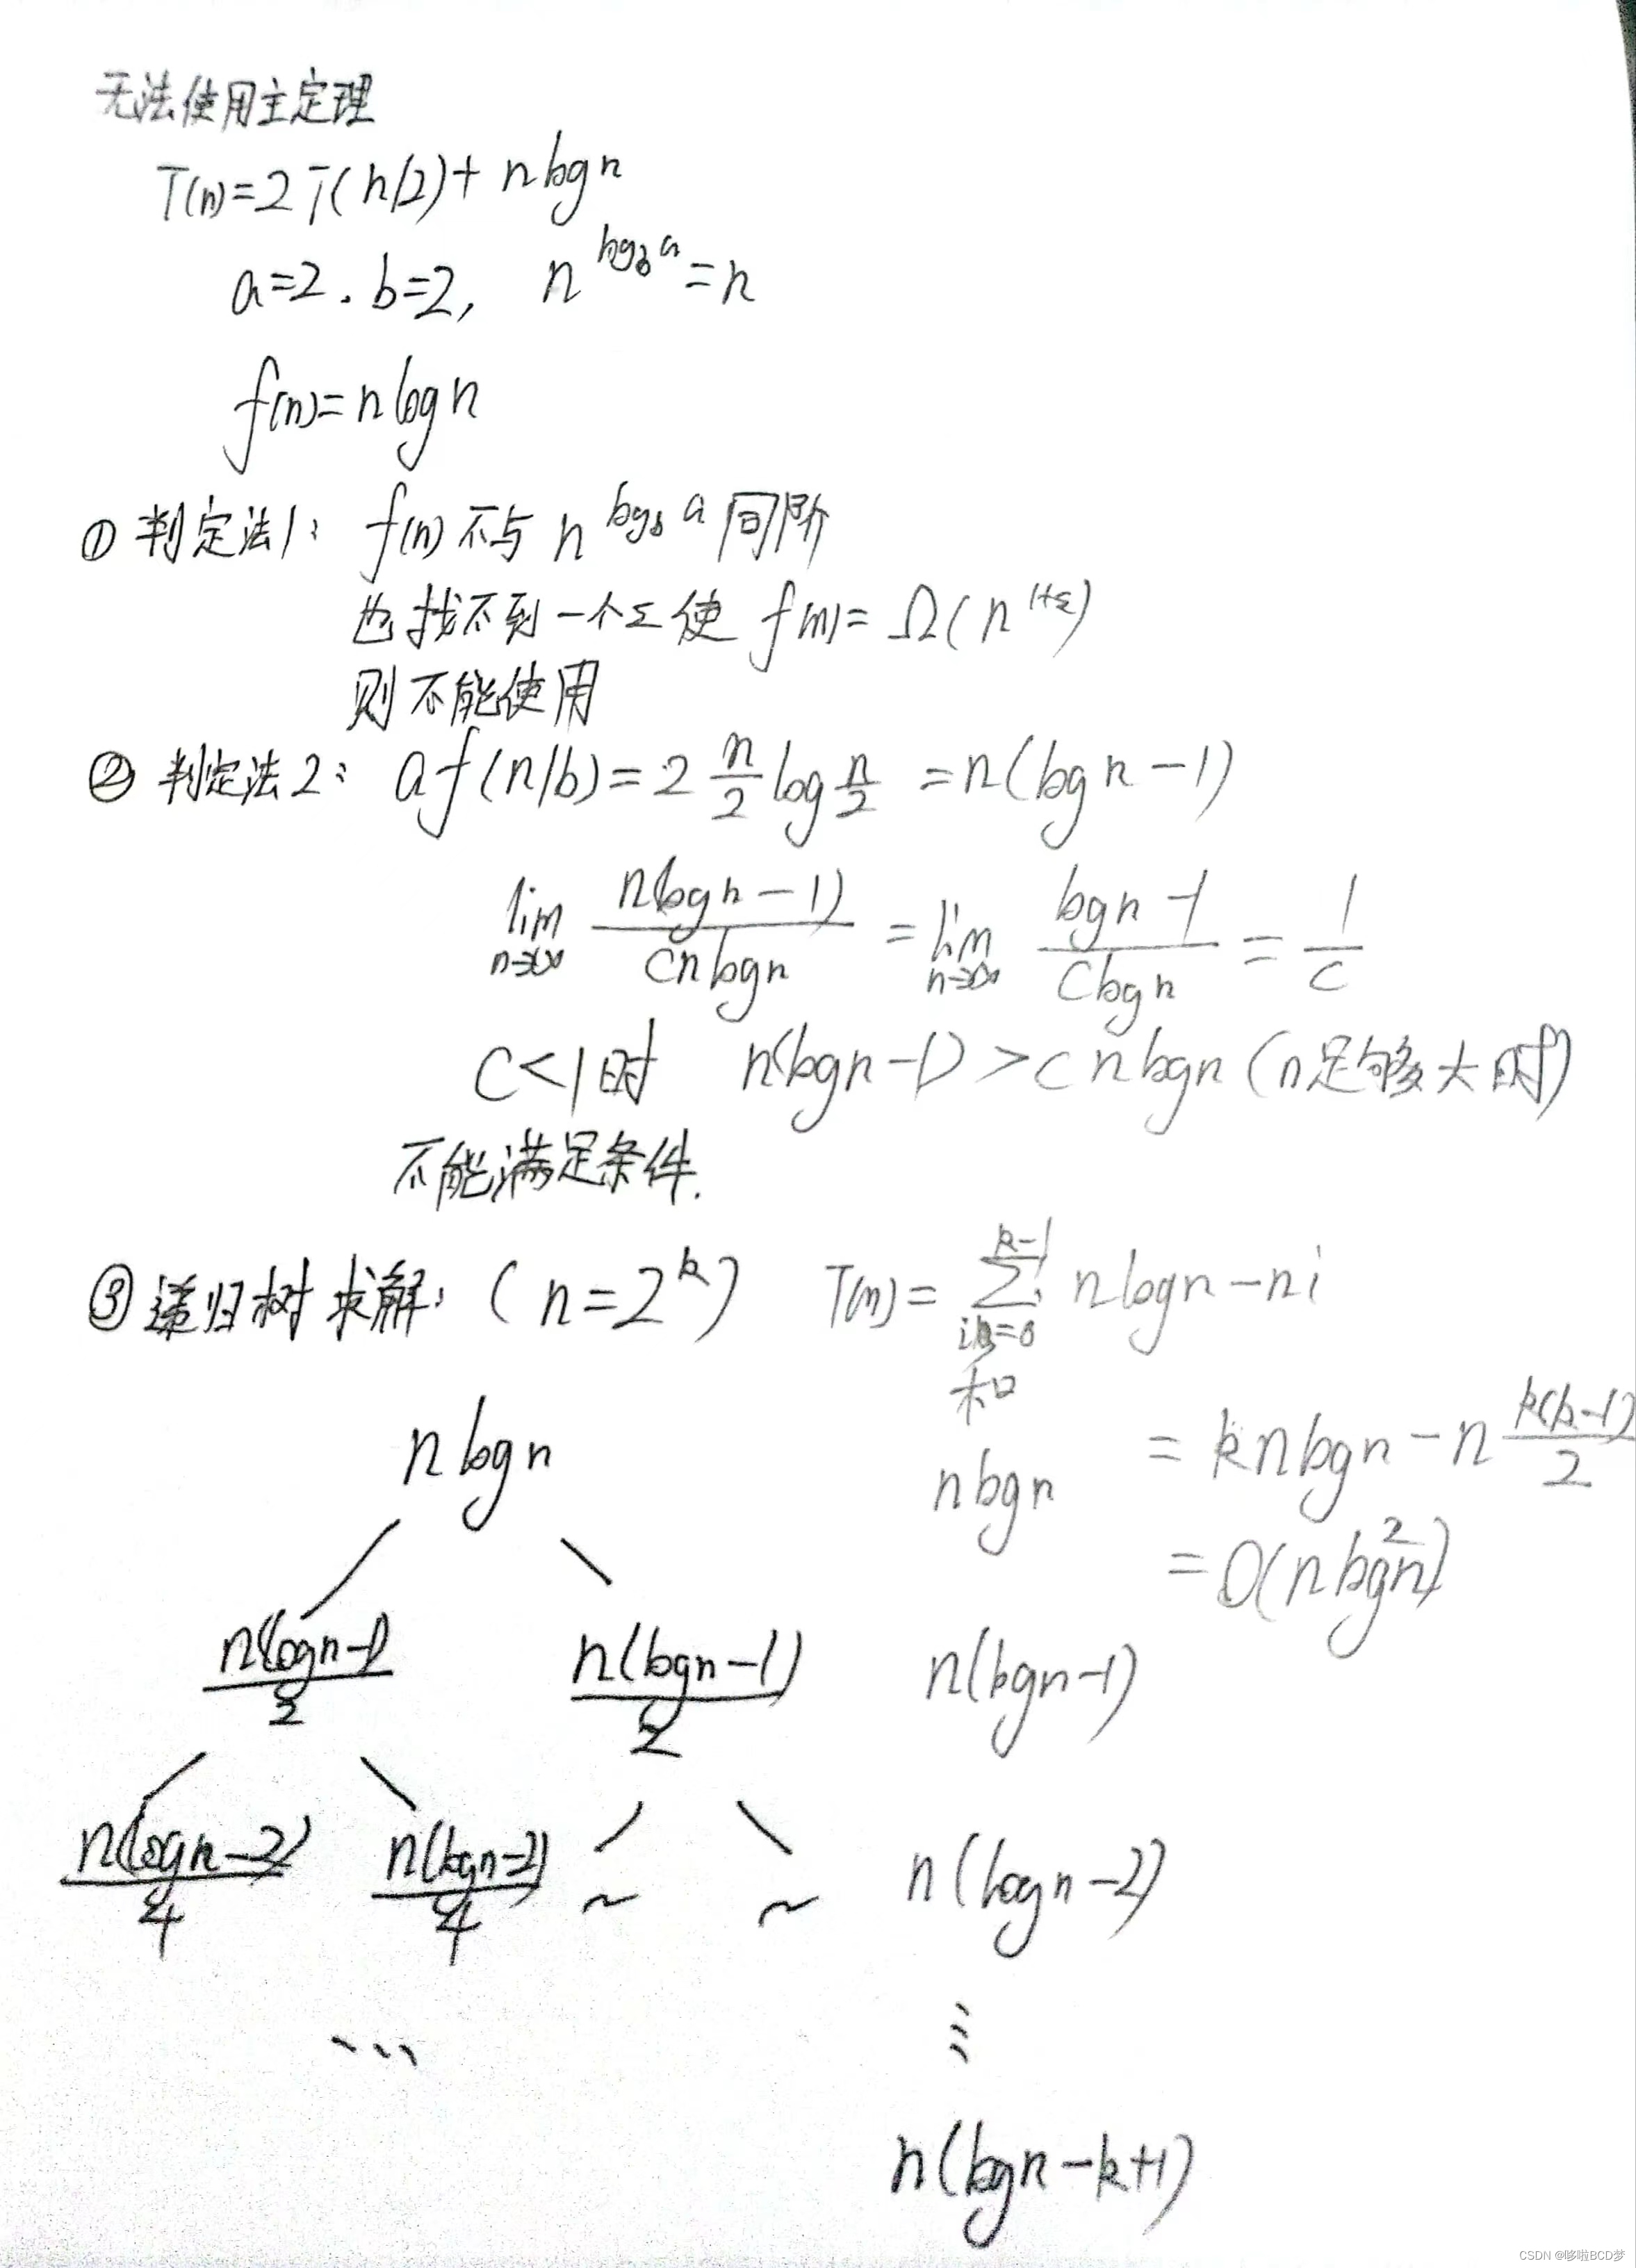 无法使用主定理
T(n)=2T(n/2)+nlogn
a=2.b=2, n^{log_b a}=n
f(n)=nlogn
①判定法1: f(n)不与n^{log_b a}同阶
也找不到一个Σ使f(n)=Ω(n^{1+ε})
则不能使用
②判定法2: af(n/b)=2 \frac{n}{2} log\frac{n}{2} =n(logn-1)
\lim_{n→∞} \frac{n(logn-1)}{cnlogn} = \lim_{n→∞} \frac{logn-1}{clogn} = \frac{1}{c}
c<1时 n(logn-1)>cnlogn(n足够大时)
不能满足条件.
③递归树求解: (n=2^k) T(n)=\sum_{i=0}^{k-1} nlogn-ni
和
=knlogn-n\frac{k(k-1)}{2}
=O(nlog^2n)
nlogn nlogn
\frac{n(logn-1)}{2} \frac{n(logn-1)}{2} n(logn-1)
\frac{n(logn-2)}{4} \frac{n(logn-2)}{4} ~ ~ n(logn-2)
... ⋮
n(logn-k+1)
CSDN @哆啦BCD梦